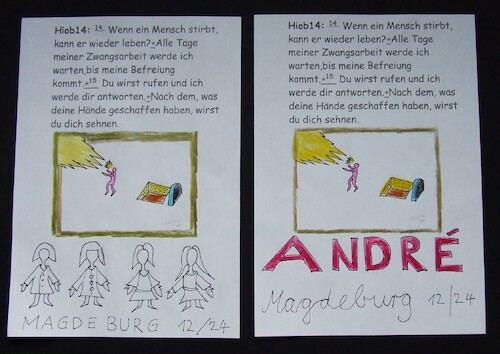 Hiob14: 14. Wenn ein Mensch stirbt,
kann er wieder leben?+Alle Tage
meiner Zwangsarbeit werde ich
warten,bis meine Befreiung
kommt.+15 Du wirst rufen und ich
werde dir antworten.+Nach dem, was
deine Hände geschaffen haben, wirst
du dich sehnen.
MAGDEBURG 12/24
Hiob14: 14. Wenn ein Mensch stirbt,
kann er wieder leben?+Alle Tage
meiner Zwangsarbeit werde ich
warten,bis meine Befreiung
kommt.+15 Du wirst rufen und ich
werde dir antworten.+Nach dem, was
deine Hände geschaffen haben, wirst
du dich sehnen.
ANDRÉ
Magdeburg 12/24